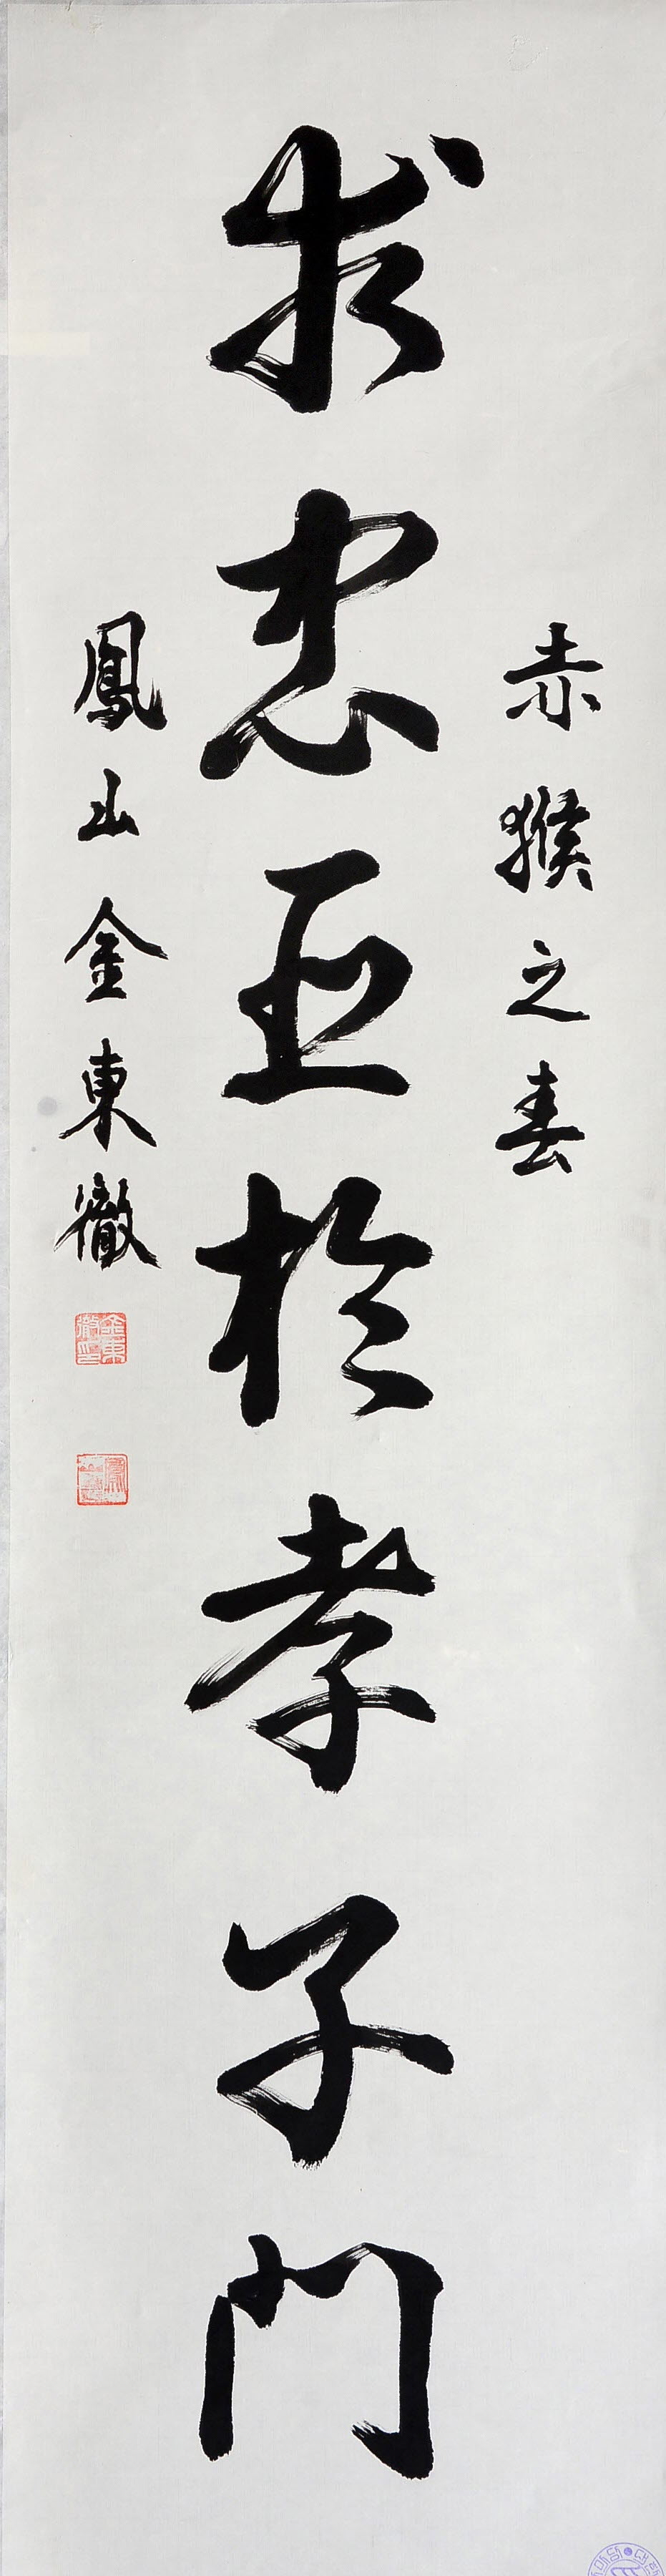 赤猴之春
求忠臣於孝子門
鳳山金東徹
金東徹印